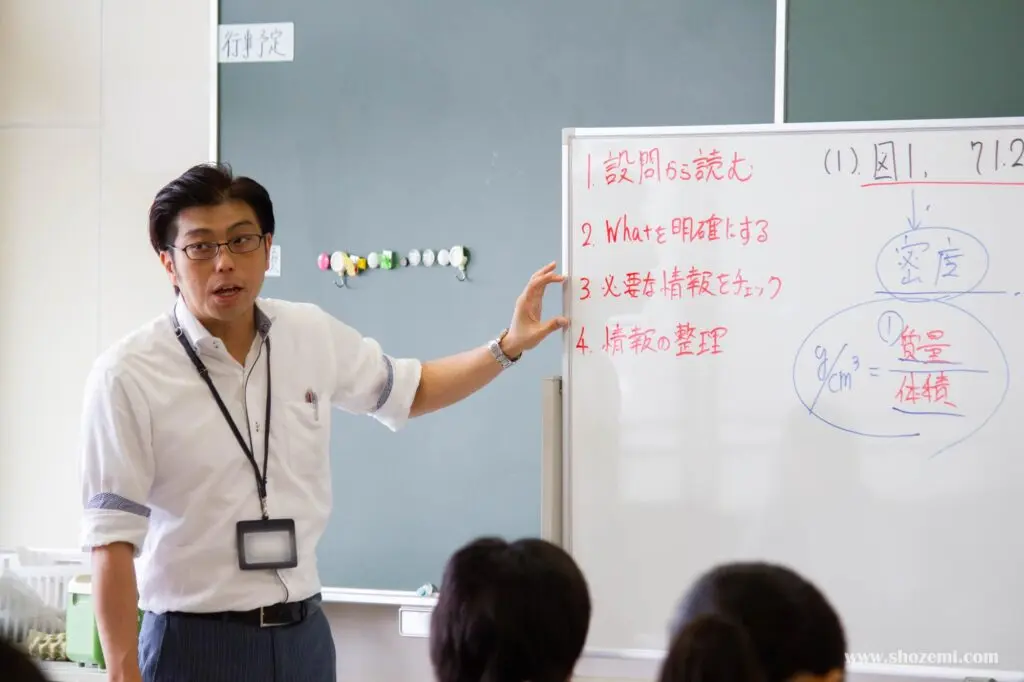 行事予定
1. 設問から読む
2. Whatを明確にする
3. 必要な情報をチェック
4. 情報の整理
(1). 図1, 71.2
密度
g/cm³ = ①質量
体積
www.shozemi.com